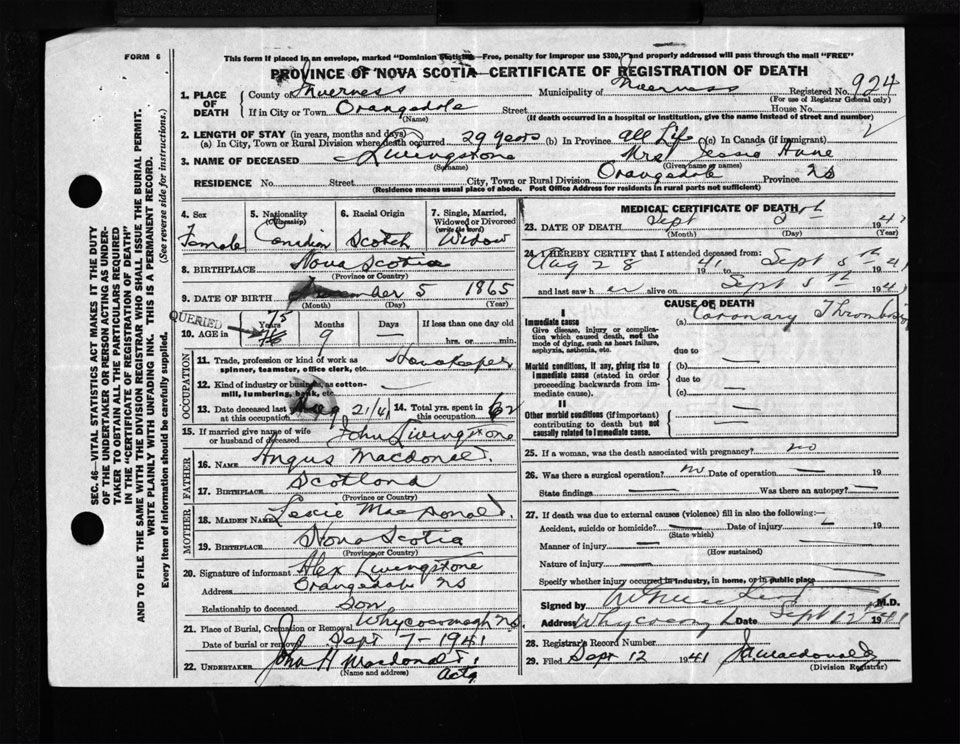 FORM 6
This form if placed in an envelope, marked "Dominion Statistics—Free, penalty for improper use $300," and properly addressed will pass through the mail "FREE"
PROVINCE OF NOVA SCOTIA—CERTIFICATE OF REGISTRATION OF DEATH
1. PLACE OF DEATH
County of Inverness Municipality of Inverness Registered No. 924
(For use of Registrar General only)
If in City or Town Orangedale Street House No.
(Name) (If death occurred in a hospital or institution, give the name instead of street and number)
2. LENGTH OF STAY (in years, months and days)
(a) In City, Town or Rural Division where death occurred 29 years (b) In Province all Life (c) In Canada (if immigrant)
3. NAME OF DECEASED Livingstone Mrs Jessie Anne
(Surname) (Given name or names)
RESIDENCE No. Street City, Town or Rural Division Orangedale Province NS
(Residence means usual place of abode. Post Office Address for residents in rural parts not sufficient)
SEC. 46—VITAL STATISTICS ACT MAKES IT THE DUTY
OF THE UNDERTAKER OR PERSON ACTING AS UNDER-
TAKER TO OBTAIN ALL THE PARTICULARS REQUIRED
IN THE "CERTIFICATE OF REGISTRATION OF DEATH"
AND TO FILE THE SAME WITH THE DIVISION REGISTRAR WHO SHALL ISSUE THE BURIAL PERMIT.
WRITE PLAINLY WITH UNFADING INK. THIS IS A PERMANENT RECORD.
Every item of information should be carefully supplied. (See reverse side for instructions.)
4. Sex 5. Nationality (Citizenship) 6. Racial Origin 7. Single, Married, Widowed or Divorced (write the word)
Female Canadian Scotch Widow
8. BIRTHPLACE Nova Scotia
(Province or Country)
9. DATE OF BIRTH 5 1865
(Month) (Day) (Year)
QUERIED
10. AGE in Years Months Days If less than one day old
75 76 9 hrs. or min.
OCCUPATION
11. Trade, profession or kind of work as spinner, teamster, office clerk, etc. Housekeeper
12. Kind of industry or business, as cotton-mill, lumbering, bank, etc.
13. Date deceased last worked at this occupation Aug 21/41 14. Total yrs. spent in this occupation 62
15. If married give name of wife or husband of deceased John Livingstone
FATHER
16. NAME Angus Macdonald
17. BIRTHPLACE Scotland
(Province or Country)
MOTHER
18. MAIDEN NAME MacDonald
19. BIRTHPLACE Nova Scotia
(Province or Country)
20. Signature of informant Alex Livingstone
Address Orangedale NS
Relationship to deceased son
21. Place of Burial, Cremation or Removal Whycocomagh NS
Date of burial or removal Sept 7-1941
22. UNDERTAKER John H Macdonald
(Name and address) actg
MEDICAL CERTIFICATE OF DEATH
23. DATE OF DEATH Sept 5th 1941
(Month) (Day) (Year)
24. I HEREBY CERTIFY that I attended deceased from:
Aug 28 1941 to Sept 5th 1941
and last saw her alive on Sept 5th 1941
CAUSE OF DEATH
I
Immediate cause (a) Coronary Thrombosis
Give disease, injury or complication which caused death, not the mode of dying, such as heart failure, asphyxia, asthenia, etc.
due to
Morbid conditions, if any, giving rise to immediate cause (stated in order proceeding backwards from immediate cause).
(b)
due to
(c)
II
Other morbid conditions (if important) contributing to death but not causally related to immediate cause.
25. If a woman, was the death associated with pregnancy? no
26. Was there a surgical operation? no Date of operation 19
State findings Was there an autopsy?
27. If death was due to external causes (violence) fill in also the following:—
Accident, suicide or homicide? Date of injury 19
(State which)
Manner of injury
(How sustained)
Nature of injury
Specify whether injury occurred in industry, in home, or in public place
Signed by M.D.
Address Whycocomagh Date Sept 12th 1941
28. Registrar's Record Number
29. Filed Sept 12 1941 Macdonald
(Division Registrar)